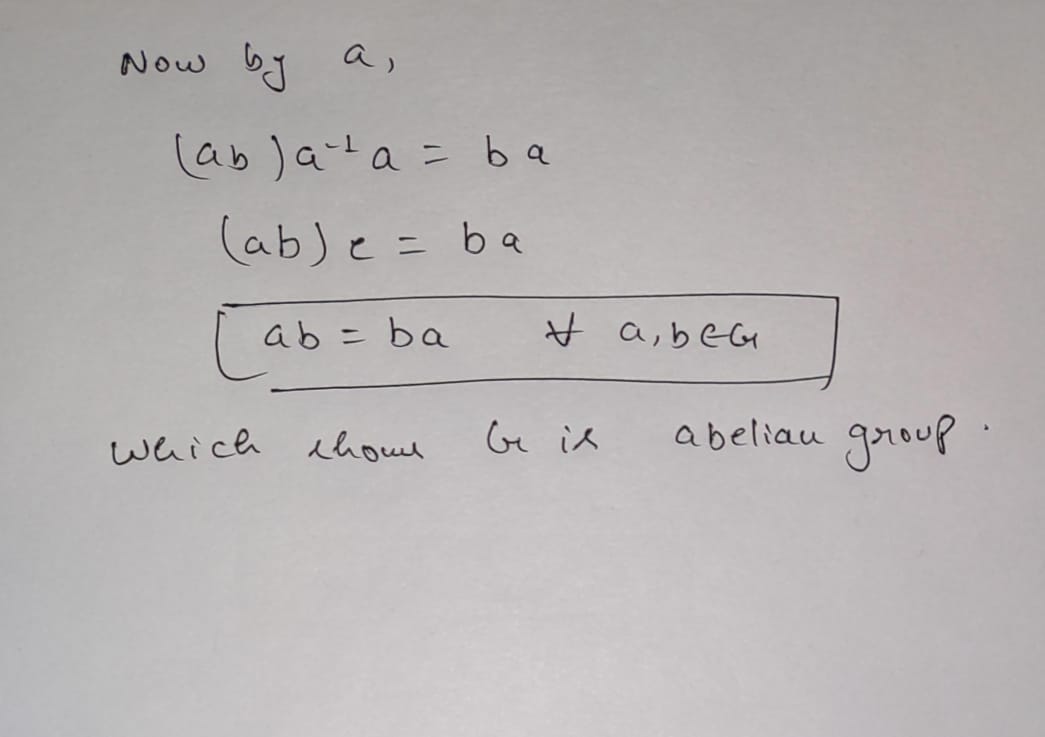 Now by a,
(ab)a⁻¹a = ba
(ab)e = ba
ab = ba ∀ a,b∈G
which shows G is abelian group.